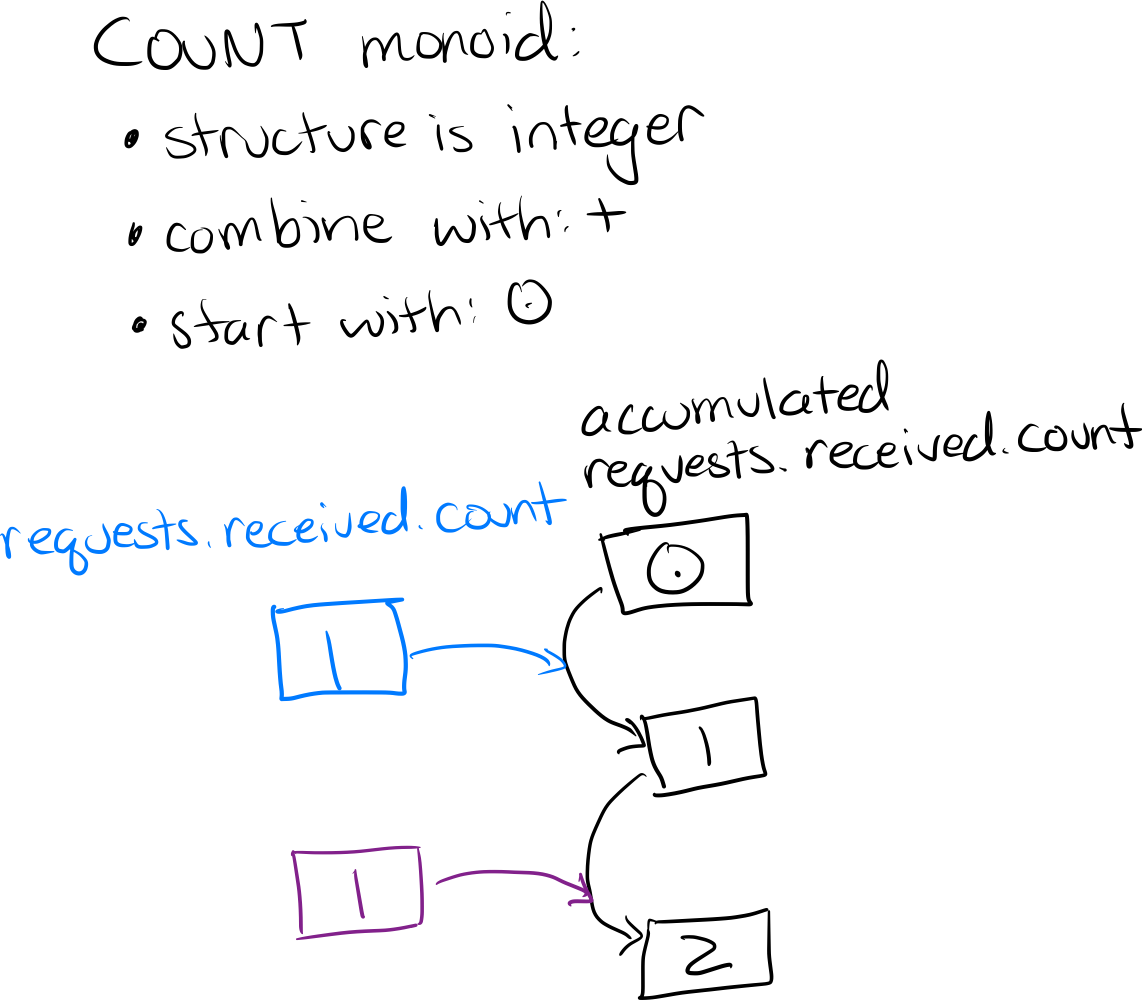 COUNT monoid:
• structure is integer
• combine with: +
• start with: 0
accumulated
requests.received.count
requests.received.count
0
1
1
1
2